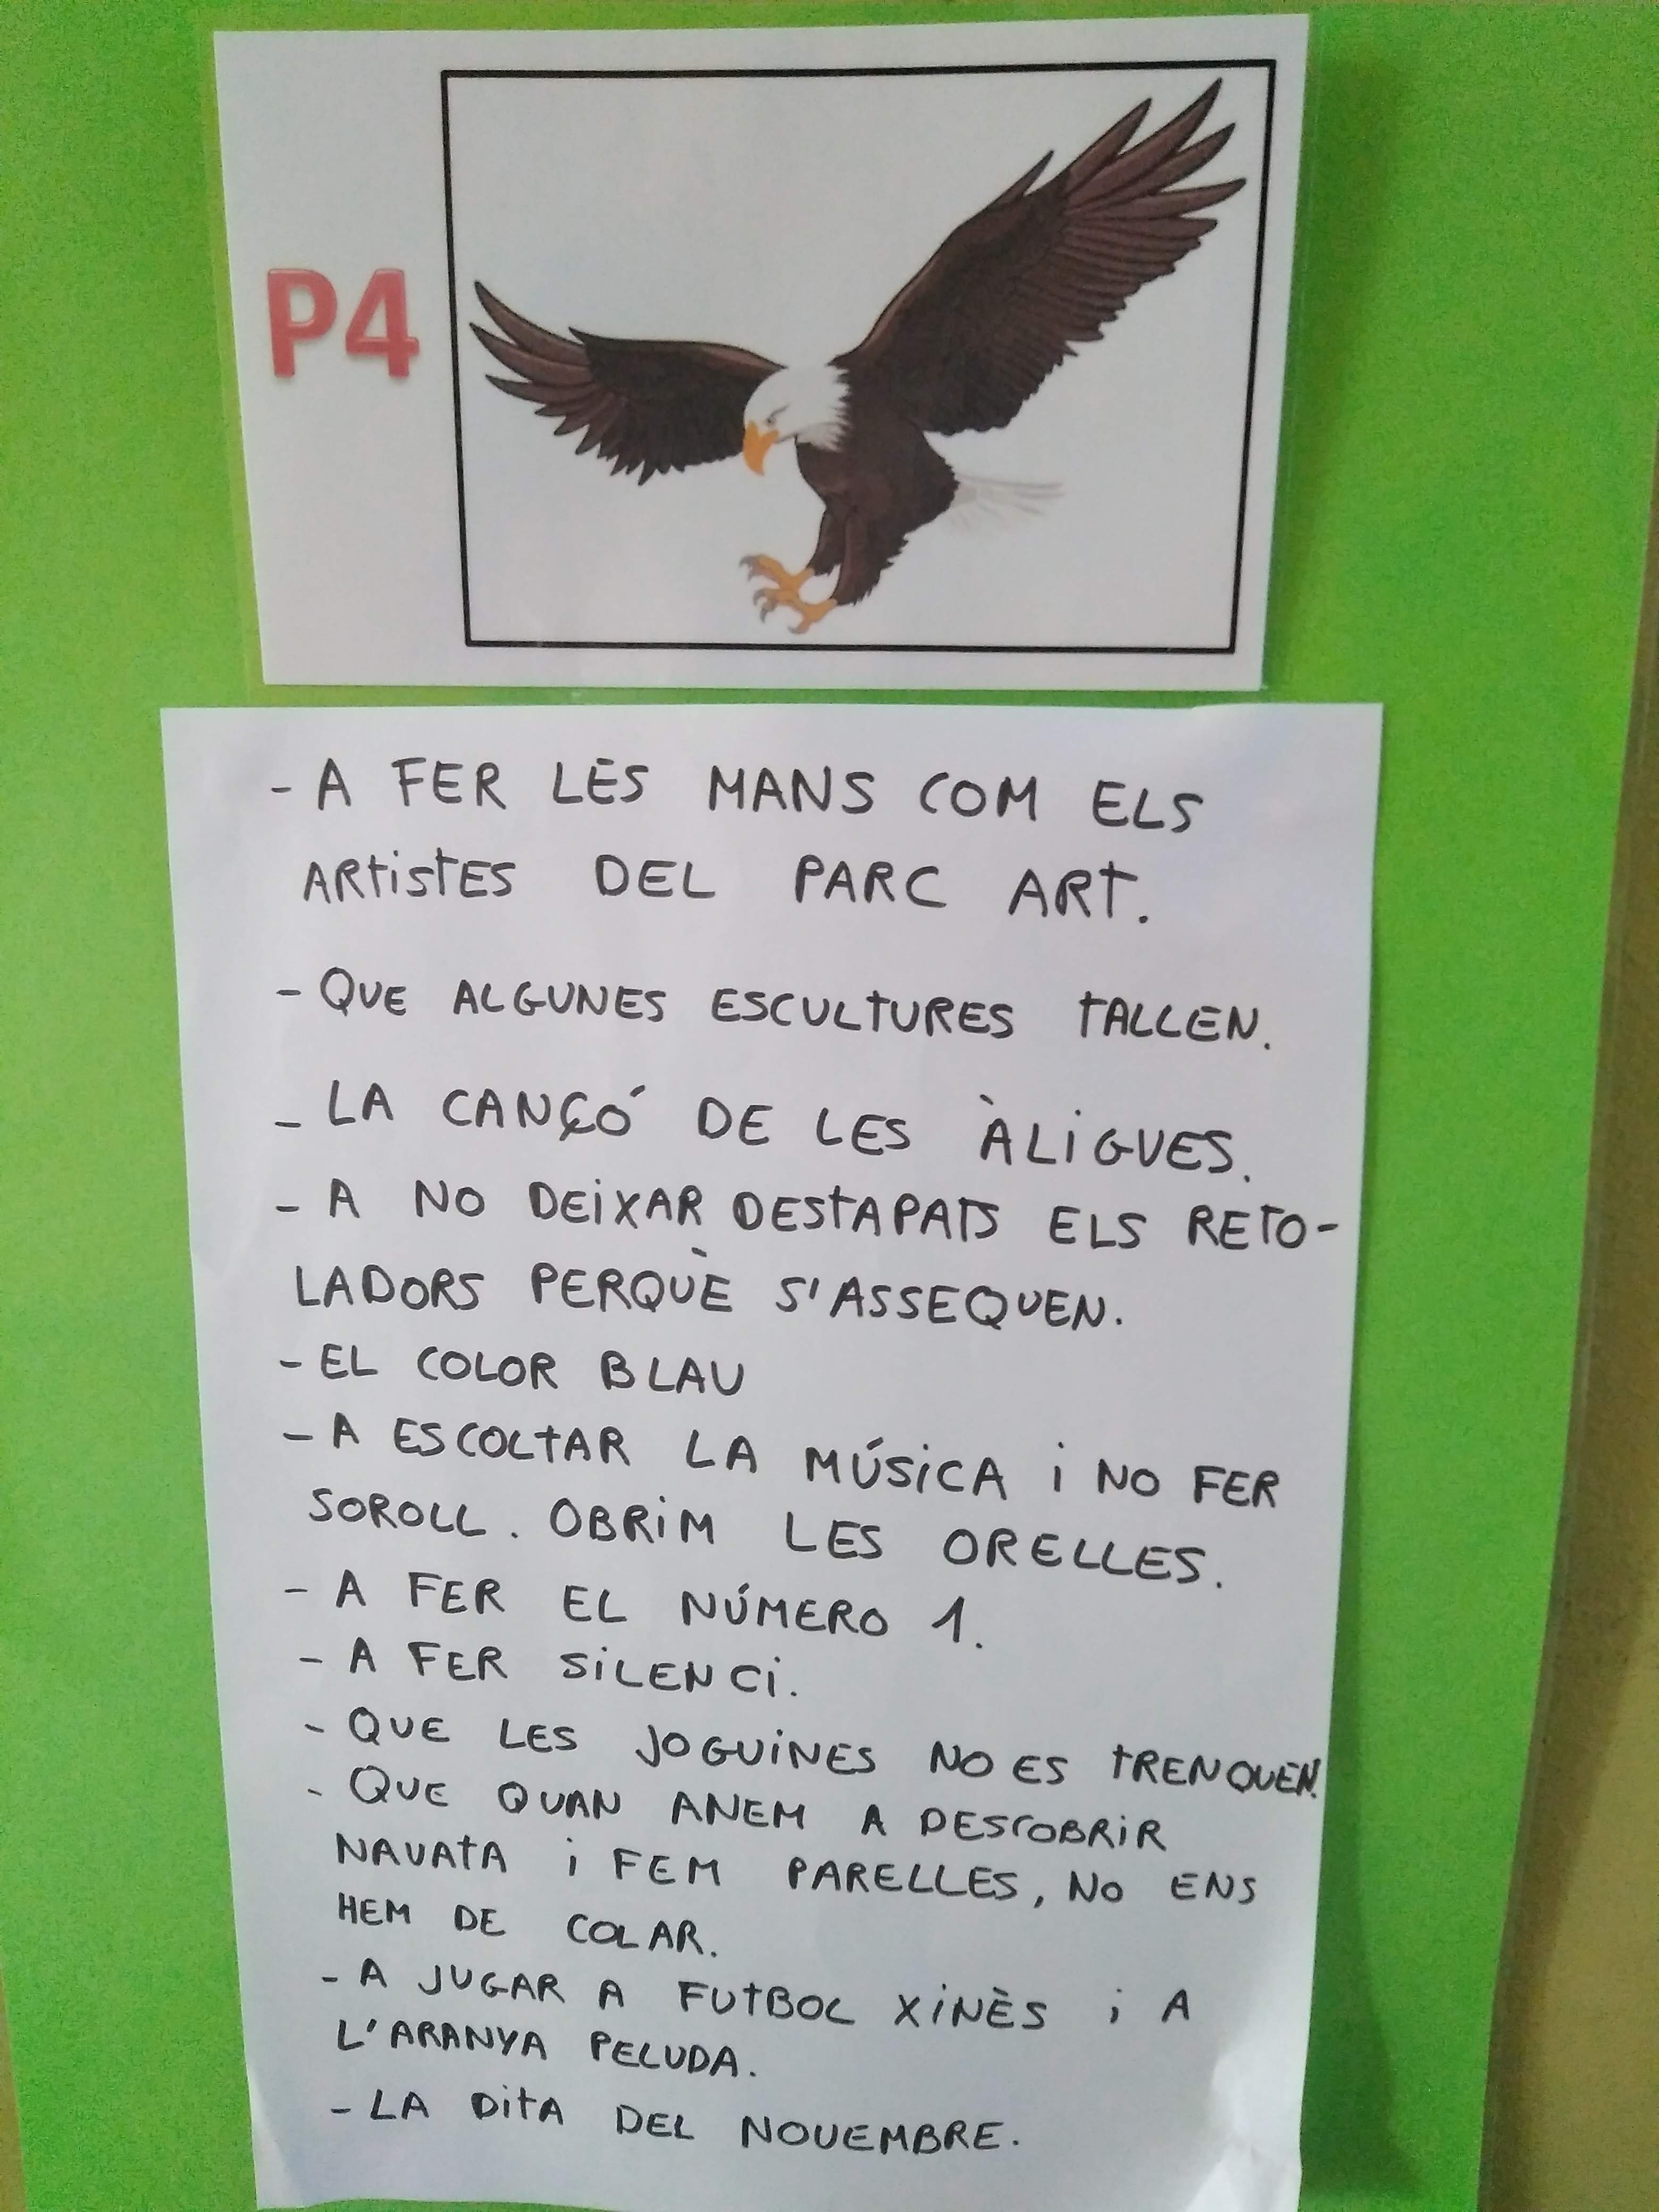 P4
- A FER LES MANS COM ELS
ARTISTES DEL PARC ART.
- QUE ALGUNES ESCULTURES TALLEN.
- LA CANÇÓ DE LES ÀLIGUES.
- A NO DEIXAR DESTAPATS ELS RETO-
LADORS PERQUÈ S'ASSEQUEN.
- EL COLOR BLAU
- A ESCOLTAR LA MÚSICA i NO FER
SOROLL. OBRIM LES ORELLES.
- A FER EL NÚMERO 1.
- A FER SILENCI.
- QUE LES JOGUINES NO ES TRENQUEN.
- QUE QUAN ANEM A DESCOBRIR
NAVATA i FEM PARELLES, NO ENS
HEM DE COLAR.
- A JUGAR A FUTBOL XINÈS i A
L'ARANYA PELUDA.
- LA DITA DEL NOVEMBRE.